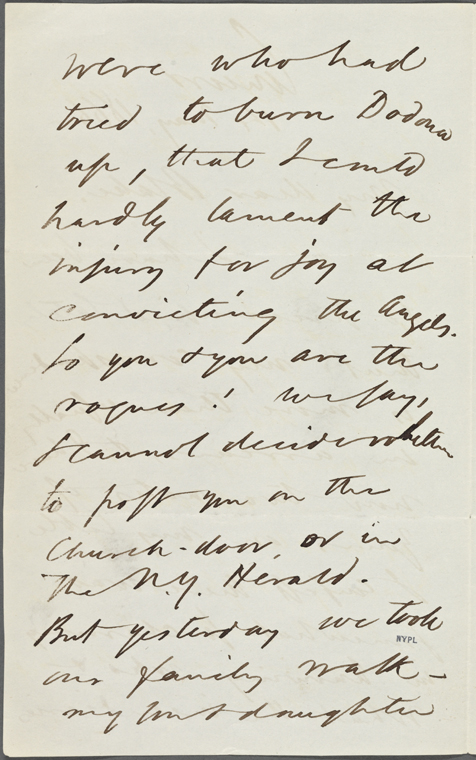 were who had
tried to burn Dodona
up, that I could
hardly lament the
injury for joy at
convicting the Angels.
So you & you are the
rogues! we say,
& cannot decide whether
to post you on the
Church-door, or in
the N.Y. Herald.
But yesterday we took
NYPL
our family walk -
my son & daughter